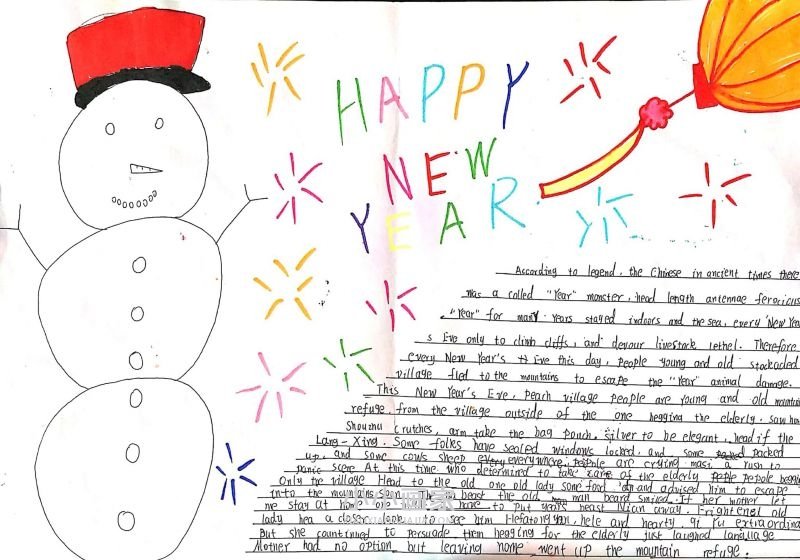 HAPPY
NEW
YEAR
According to legend, the Chinese in ancient times there
was a called "Year" monster, head length antennae ferocious
"Year" for many years stayed indoors and the sea, every 'New Yea
s Eve only to climb cliffs, and devour livestock lethel. Therefore
every New Year's Eve this day, people young and old stockaded
village fled to the mountains to escape the "Year" animal damage.
This New Year's Eve, Peach village people are young and old mountain
refuge, from the village outside of the one hegging the elderly. saw him
Shouzhu crutches, arm take the bag ponch, silver to be elegant, head if the
Lang-Xing. Some folks have sealed windows locked, and some packed
up, and some cows sheep everywhere, people are crying masi, a rush to
panic scene At this time who determined to take care of the elderly people
Only the village Head to the old one old lady some food and advised him to escape
into the mountains beast the old man beard smiled. If her mother let
me stay at home one to put years beast Nian away. Frightened old
lady hea a closer look to see him hele and hearty,
But she countinued to persuade them hegging for the elderly just laughed language
Mother had no option but leaving home, went up the mountain refuge.